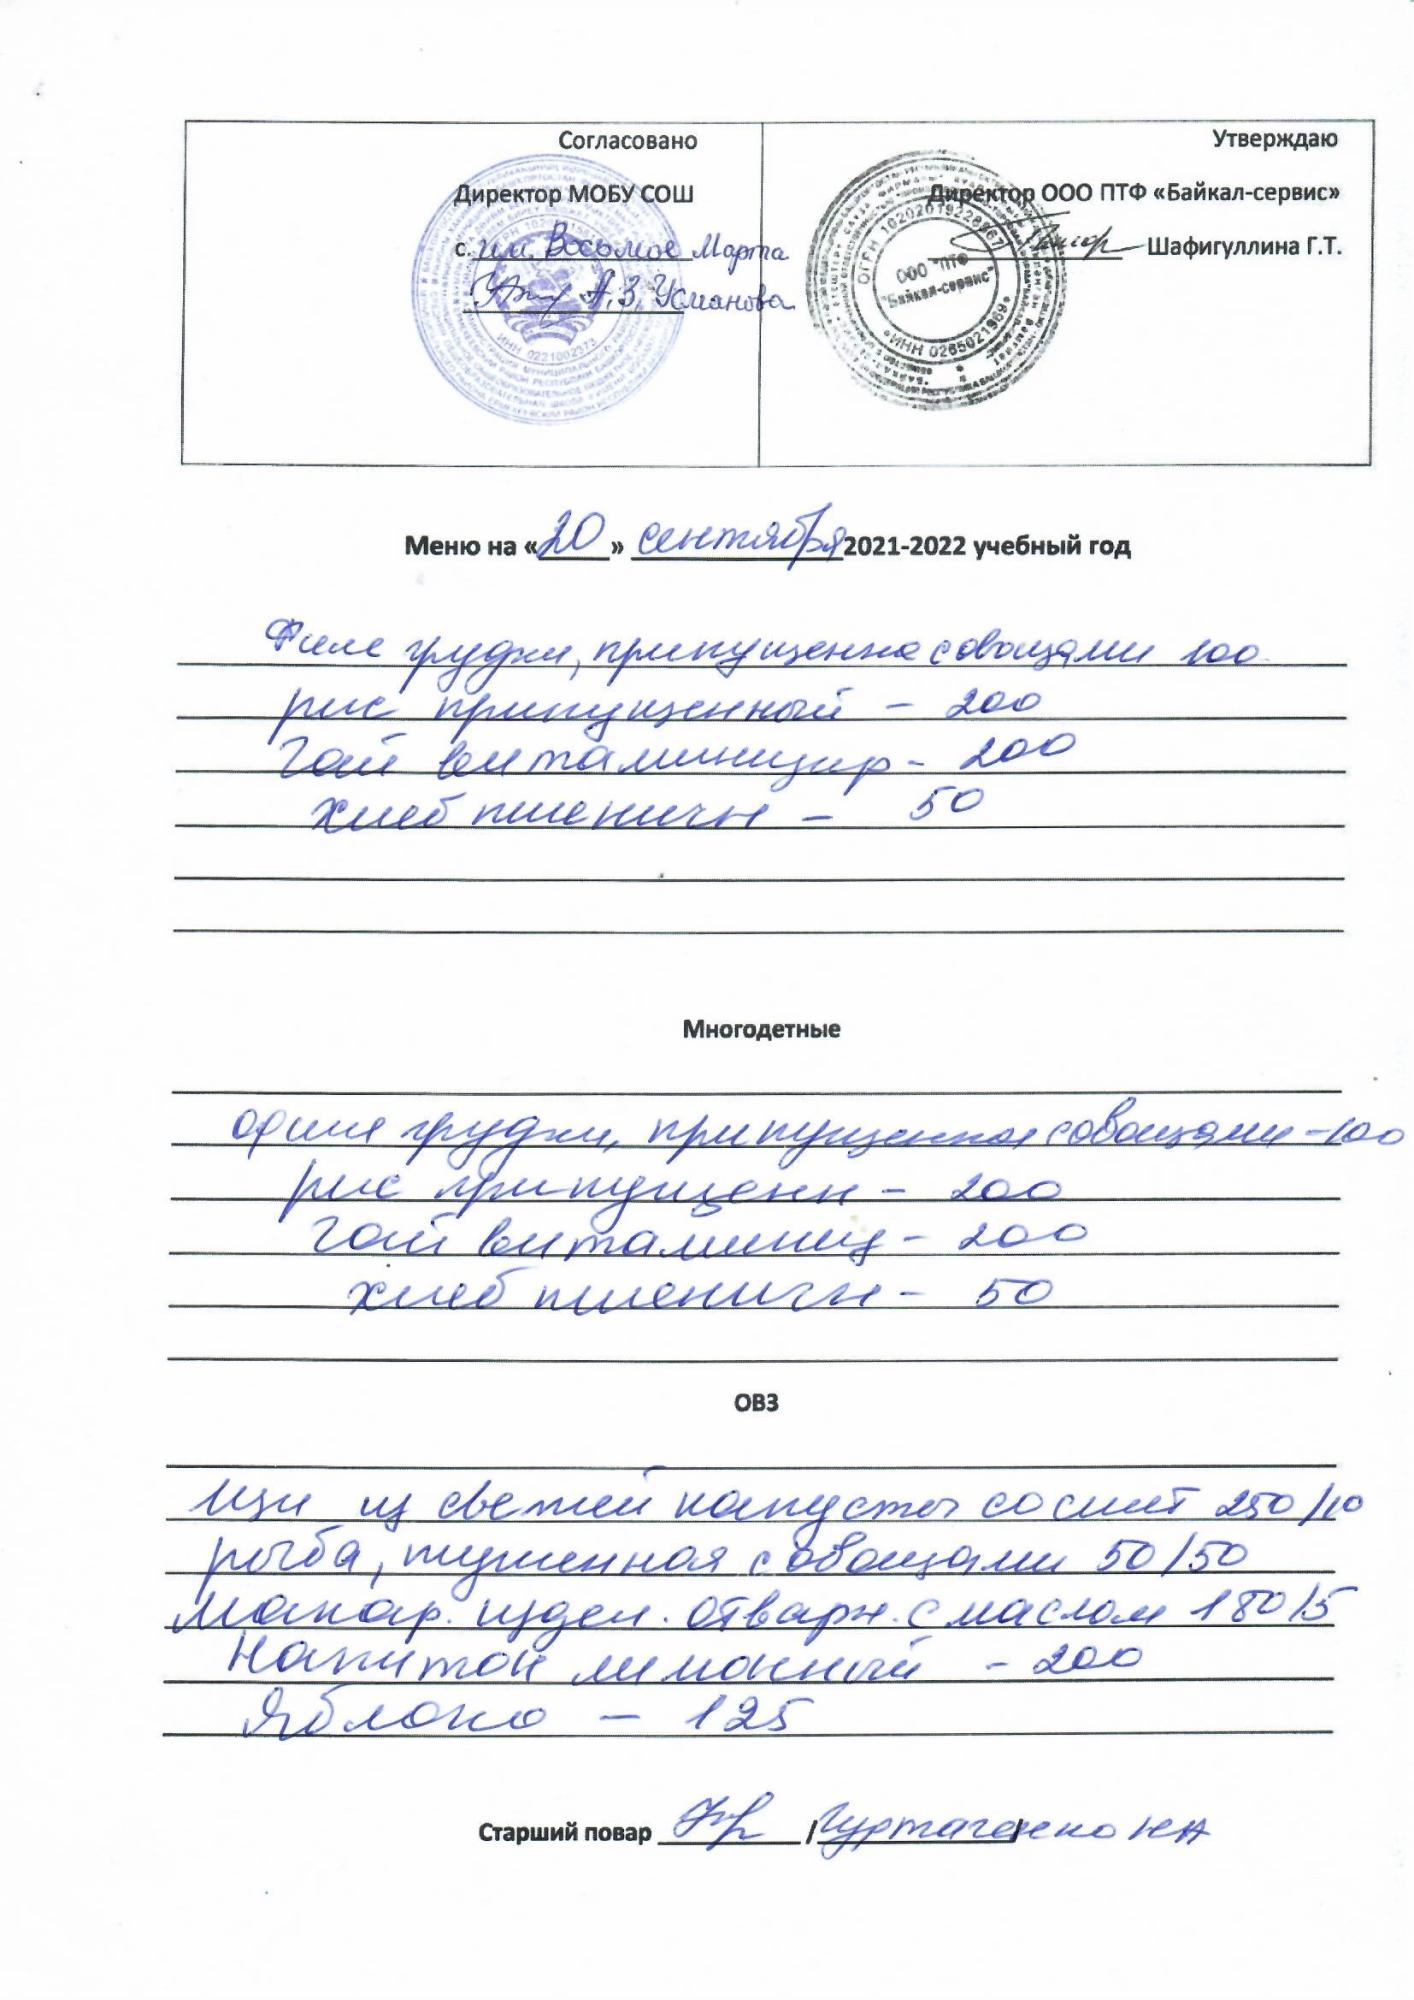 Согласовано
Директор МОБУ СОШ
с. им. Восьмое Марта
А.З. Усманова
ИНН 0221002373
Утверждаю
Директор ООО ПТФ «Байкал-сервис»
Шафигуллина Г.Т.
ООО "ПТФ
"Байкал-сервис"
ИНН 0265021969
Меню на «20» сентября 2021-2022 учебный год
Филе грудки, припущенное с овощами 100
рис припущенный - 200
Чай витаминизир - 200
хлеб пшеничн - 50
Многодетные
филе грудки, припущенное с овощами - 100
рис припущенн - 200
Чай витаминиз - 200
хлеб пшеничн - 50
ОВЗ
Щи из свежей капусты со смет 250/10
рыба, тушенная с овощами 50/50
Макар. издел. отварн. с маслом 180/5
Напиток лимонный - 200
Яблоко - 125
Старший повар / /